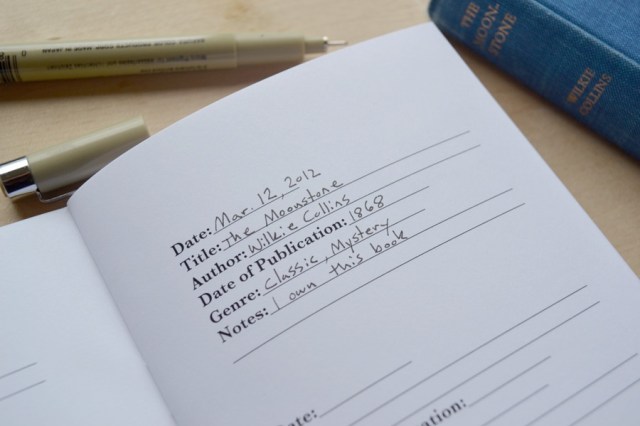 THE
MOON-
STONE
WILKIE
COLLINS
Date: Mar. 12, 2012
Title: The Moonstone
Author: Wilkie Collins
Date of Publication: 1868
Genre: Classic, Mystery
Notes: I own this book
ate:
cation: